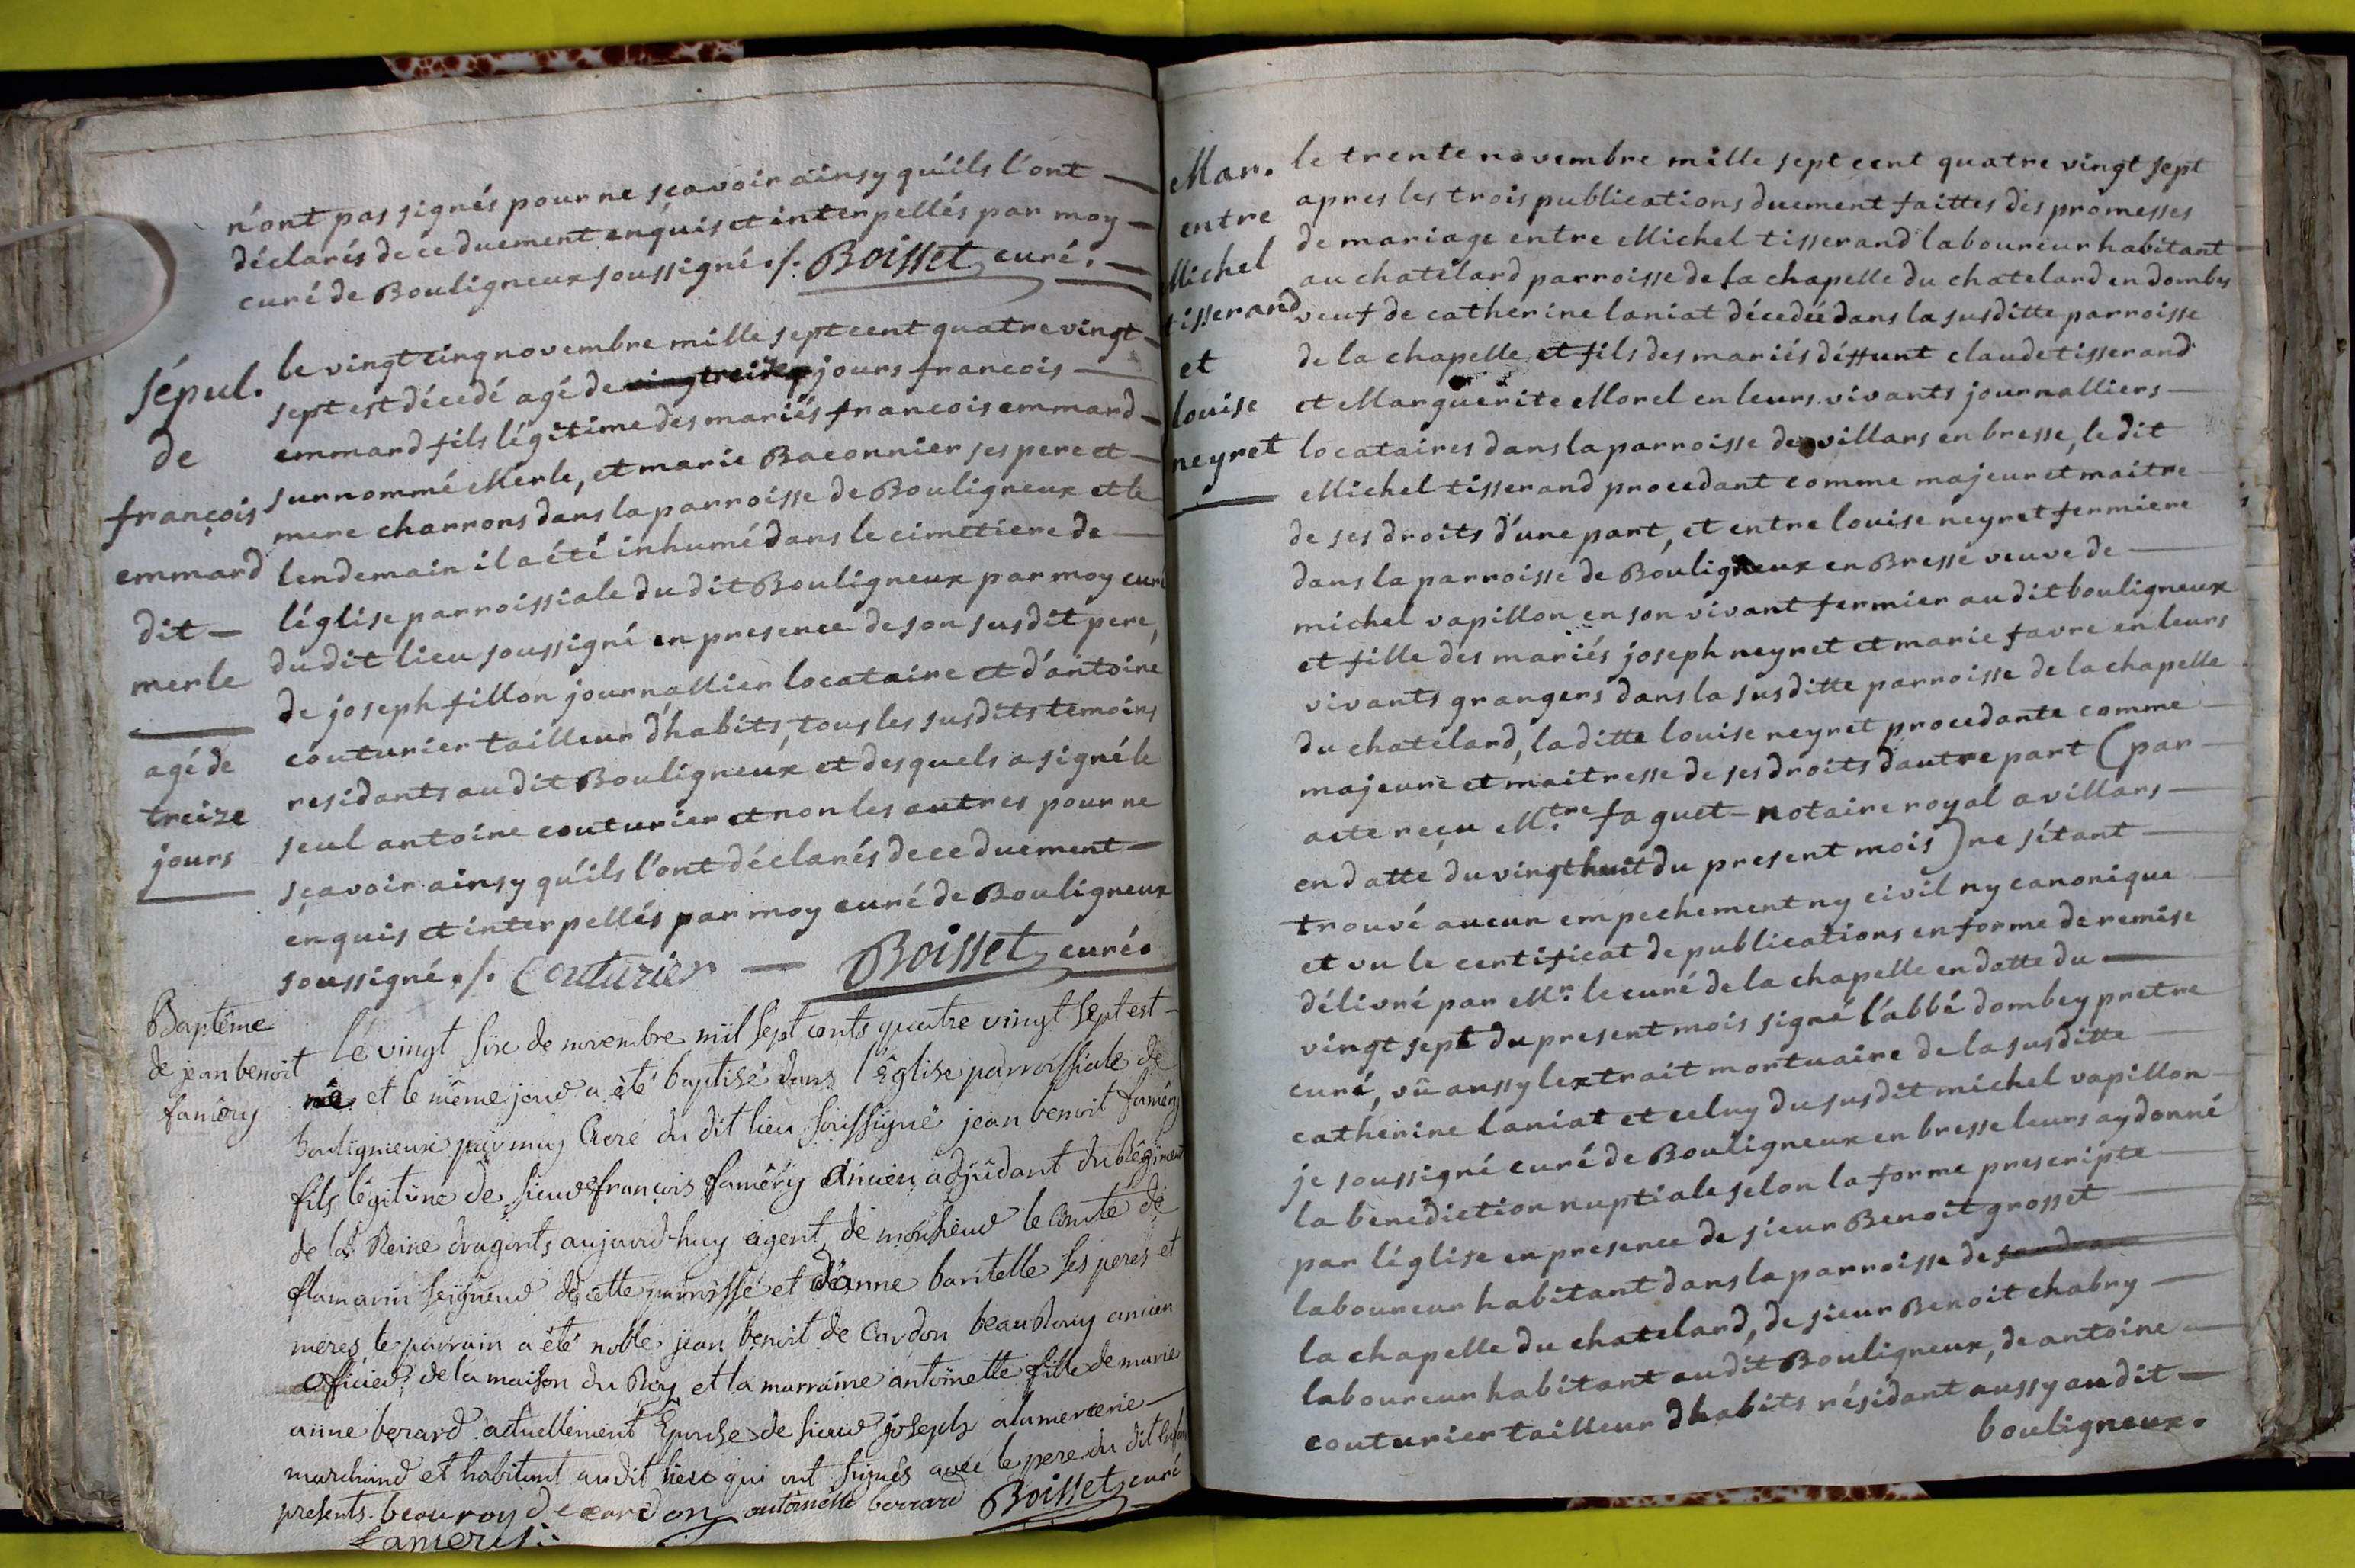 n'ont pas signés pour ne sçavoir ainsy qu'ils l'ont
déclarés de ce duement enquis et interpellés par moy
curé de Bouligneux soussigné ./. Boisset curé.
Sépul.
de
françois
emmard
dit
merle
agé de
treize
jours
le vingt cinq novembre mille sept cent quatre vingt
sept est décedé agé de treize jours francois
emmard fils légitime des mariés francois emmard
surnommé Merle, et marie Baconnier ses pere et
mere charrons dans la parroisse de Bouligneux et le
lendemain il a été inhumé dans le cimetiere de
l'église parroissiale du dit Bouligneux par moy curé
du dit lieu soussigné en presence de son susdit pere,
de joseph fillon journallier locataire et d'antoine
couturier tailleur d'habits, tous les susdits temoins
residants au dit Bouligneux et desquels a signé le
seul antoine couturier et non les autres pour ne
sçavoir ainsy qu'ils l'ont déclarés de ce duement
enquis et interpellés par moy curé de Bouligneux
soussigné ./. Couturier Boisset curé.
Baptême
de jean benoit
faméry
Lé vingt six de novembre mil sept cents quatre vingt sept est
né et le même jour a été baptisé dans l'église parroissiale de
bouligneux par moy Curé du dit lieu soussigné jean benoit faméry
fils légitime de sieur françois faméry ancien adjudant du Régiment
de la Reine dragonts aujourd-huy agent de monsieur le Comte de
flamarin seigneur de cette parroisse et d'anne baritelle ses peres et
meres, le parrain a été noble jean benoit de Cardon beauRouy ancien
officier de la maison du Roy et la marraine antoinette fille de marie
anne berard actuellement Epouse de sieur joseph alamercerie
marchand et habitant au dit lieu qui ont signés avec le pere du dit Enfant
presents. beauroy de cardon antoinette berrard Boisset curé
faméry.
Mar.
entre
Michel
tisserand
et
louise
neyret
le trente novembre mille sept cent quatre vingt sept
apres les trois publications duement faittes des promesses
de mariage entre Michel tisserand laboureur habitant
au chatelard parroisse de la chapelle du chatelard en dombes
veuf de catherine laniat décedée dans la susditte parroisse
de la chapelle et fils des mariés déffunt claude tisserand
et Marguerite Morel en leurs vivants journalliers
locataires dans la parroisse de villars en bresse, le dit
Michel tisserand procedant comme majeur et maitre
de ses droits d'une part, et entre louise neyret fermiere
dans la parroisse de Bouligneux en Bresse veuve de
michel vapillon en son vivant fermier au dit bouligneux
et fille des mariés joseph neyret et marie favre en leurs
vivants grangers dans la susditte parroisse de la chapelle
du chatelard, la ditte louise neyret procedante comme
majeure et maitresse de ses droits d'autre part (par
acte reçu M.tre faguet notaire royal a villars
en datte du vingt huit du present mois) ne s'étant
trouvé aucun empechement ny civil ny canonique
et vu le certificat de publications en forme de remise
délivré par Mr. le curé de la chapelle en datte du
vingt sept du present mois signé l'abbé dombey pretre
curé, vû aussy l'extrait mortuaire de la susditte
catherine laniat et celuy du susdit michel vapillon
je soussigné curé de Bouligneux en bresse leurs ay donné
la benediction nuptiale selon la forme prescripte
par l'église en presence de sieur Benoit grosset
laboureur habitant dans la parroisse de
la chapelle du chatelard, de sieur Benoit chabry
laboureur habitant au dit Bouligneux, de antoine
couturier tailleur d'habits résidant aussy au dit
bouligneux.